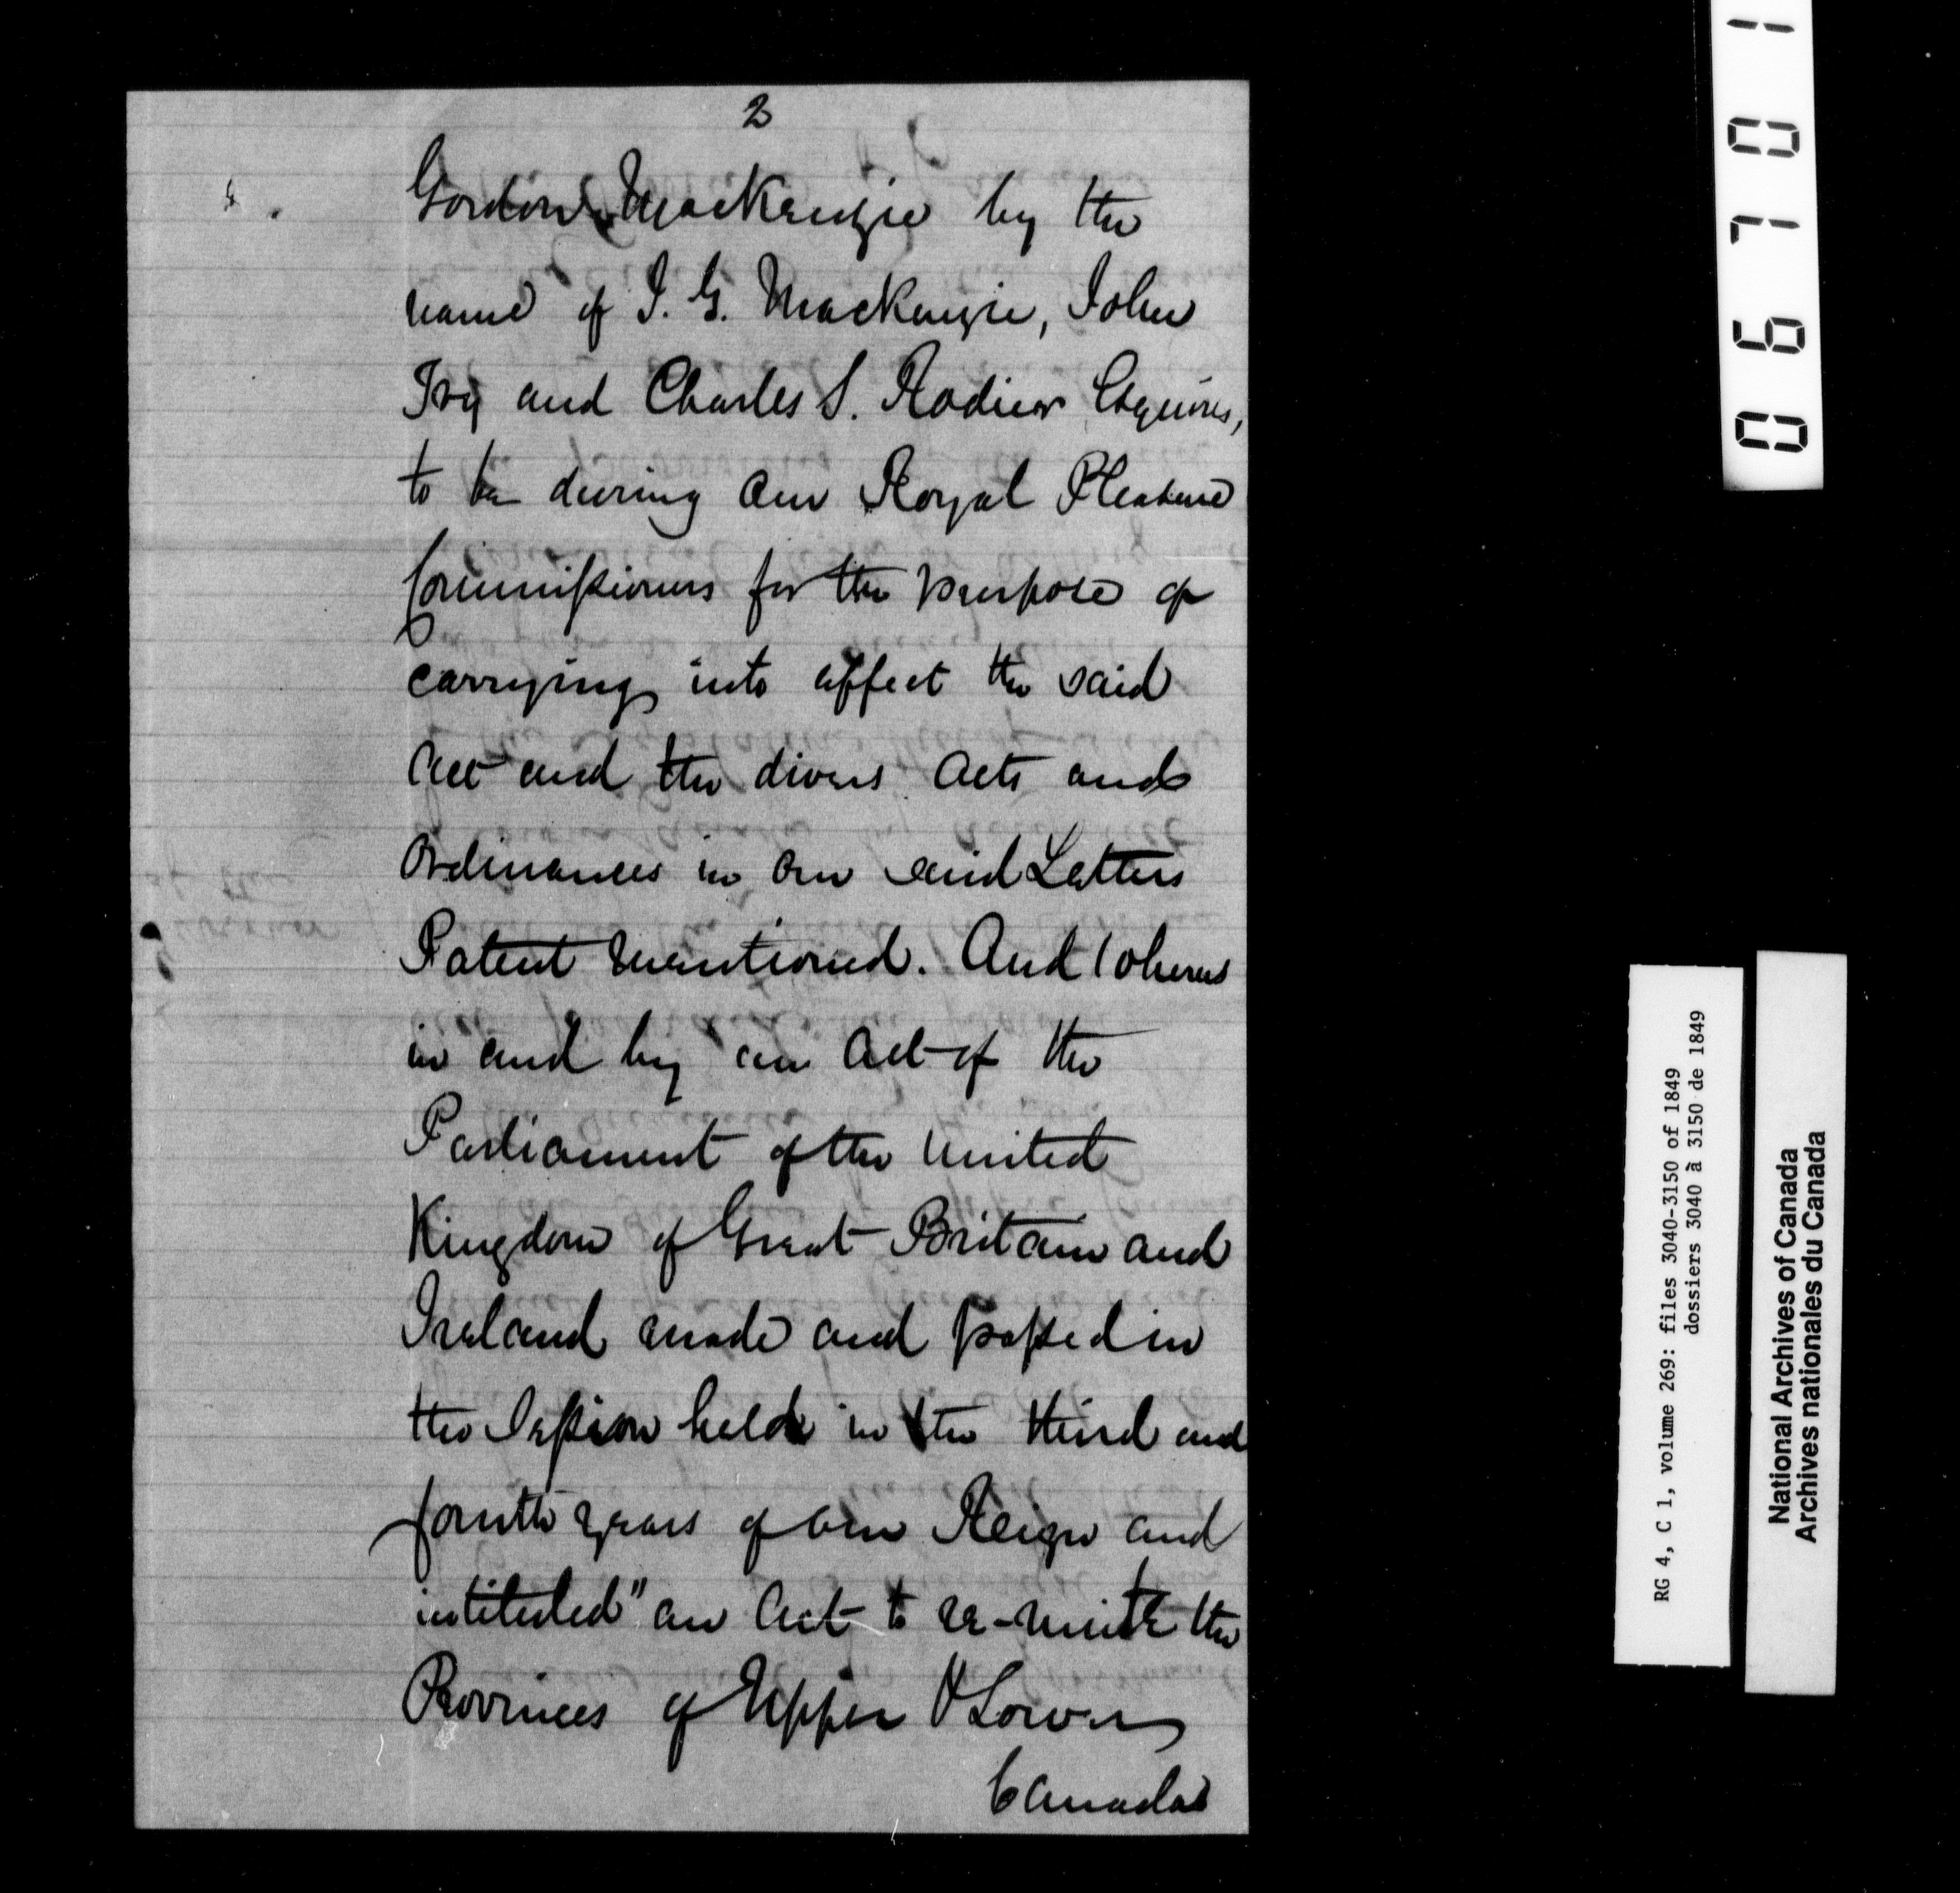 2
Gordon Mackenzie by the
name of J. G. Mackenzie, John
Try and Charles S. Rodier Esquires,
to be during Our Royal Pleasure
Commissioners for the purpose of
carrying into effect the said
Act and the divers Acts and
Ordinances in Our said Letters
Patent mentioned. And Whereas
in and by an Act of the
Parliament of the United
Kingdom of Great Britain and
Ireland made and passed in
the Session held in the third and
fourth years of Our Reign and
intituled "an Act to re-unite the
Provinces of Upper & Lower
Canada
06701
RG 4, C 1, volume 269: files 3040-3150 of 1849
dossiers 3040 à 3150 de 1849
National Archives of Canada
Archives nationales du Canada